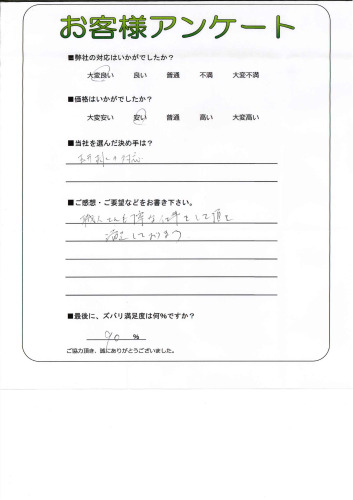 お客様アンケート
■弊社の対応はいかがでしたか?
大変良い 良い 普通 不満 大変不満
■価格はいかがでしたか?
大変安い 安い 普通 高い 大変高い
■当社を選んだ決め手は?
の対応
■ご感想・ご要望などをお書き下さい。
職人さんも丁寧な仕事をして頂き
満足しております
■最後に、ズバリ満足度は何%ですか?
90 %
ご協力頂き、誠にありがとうございました。